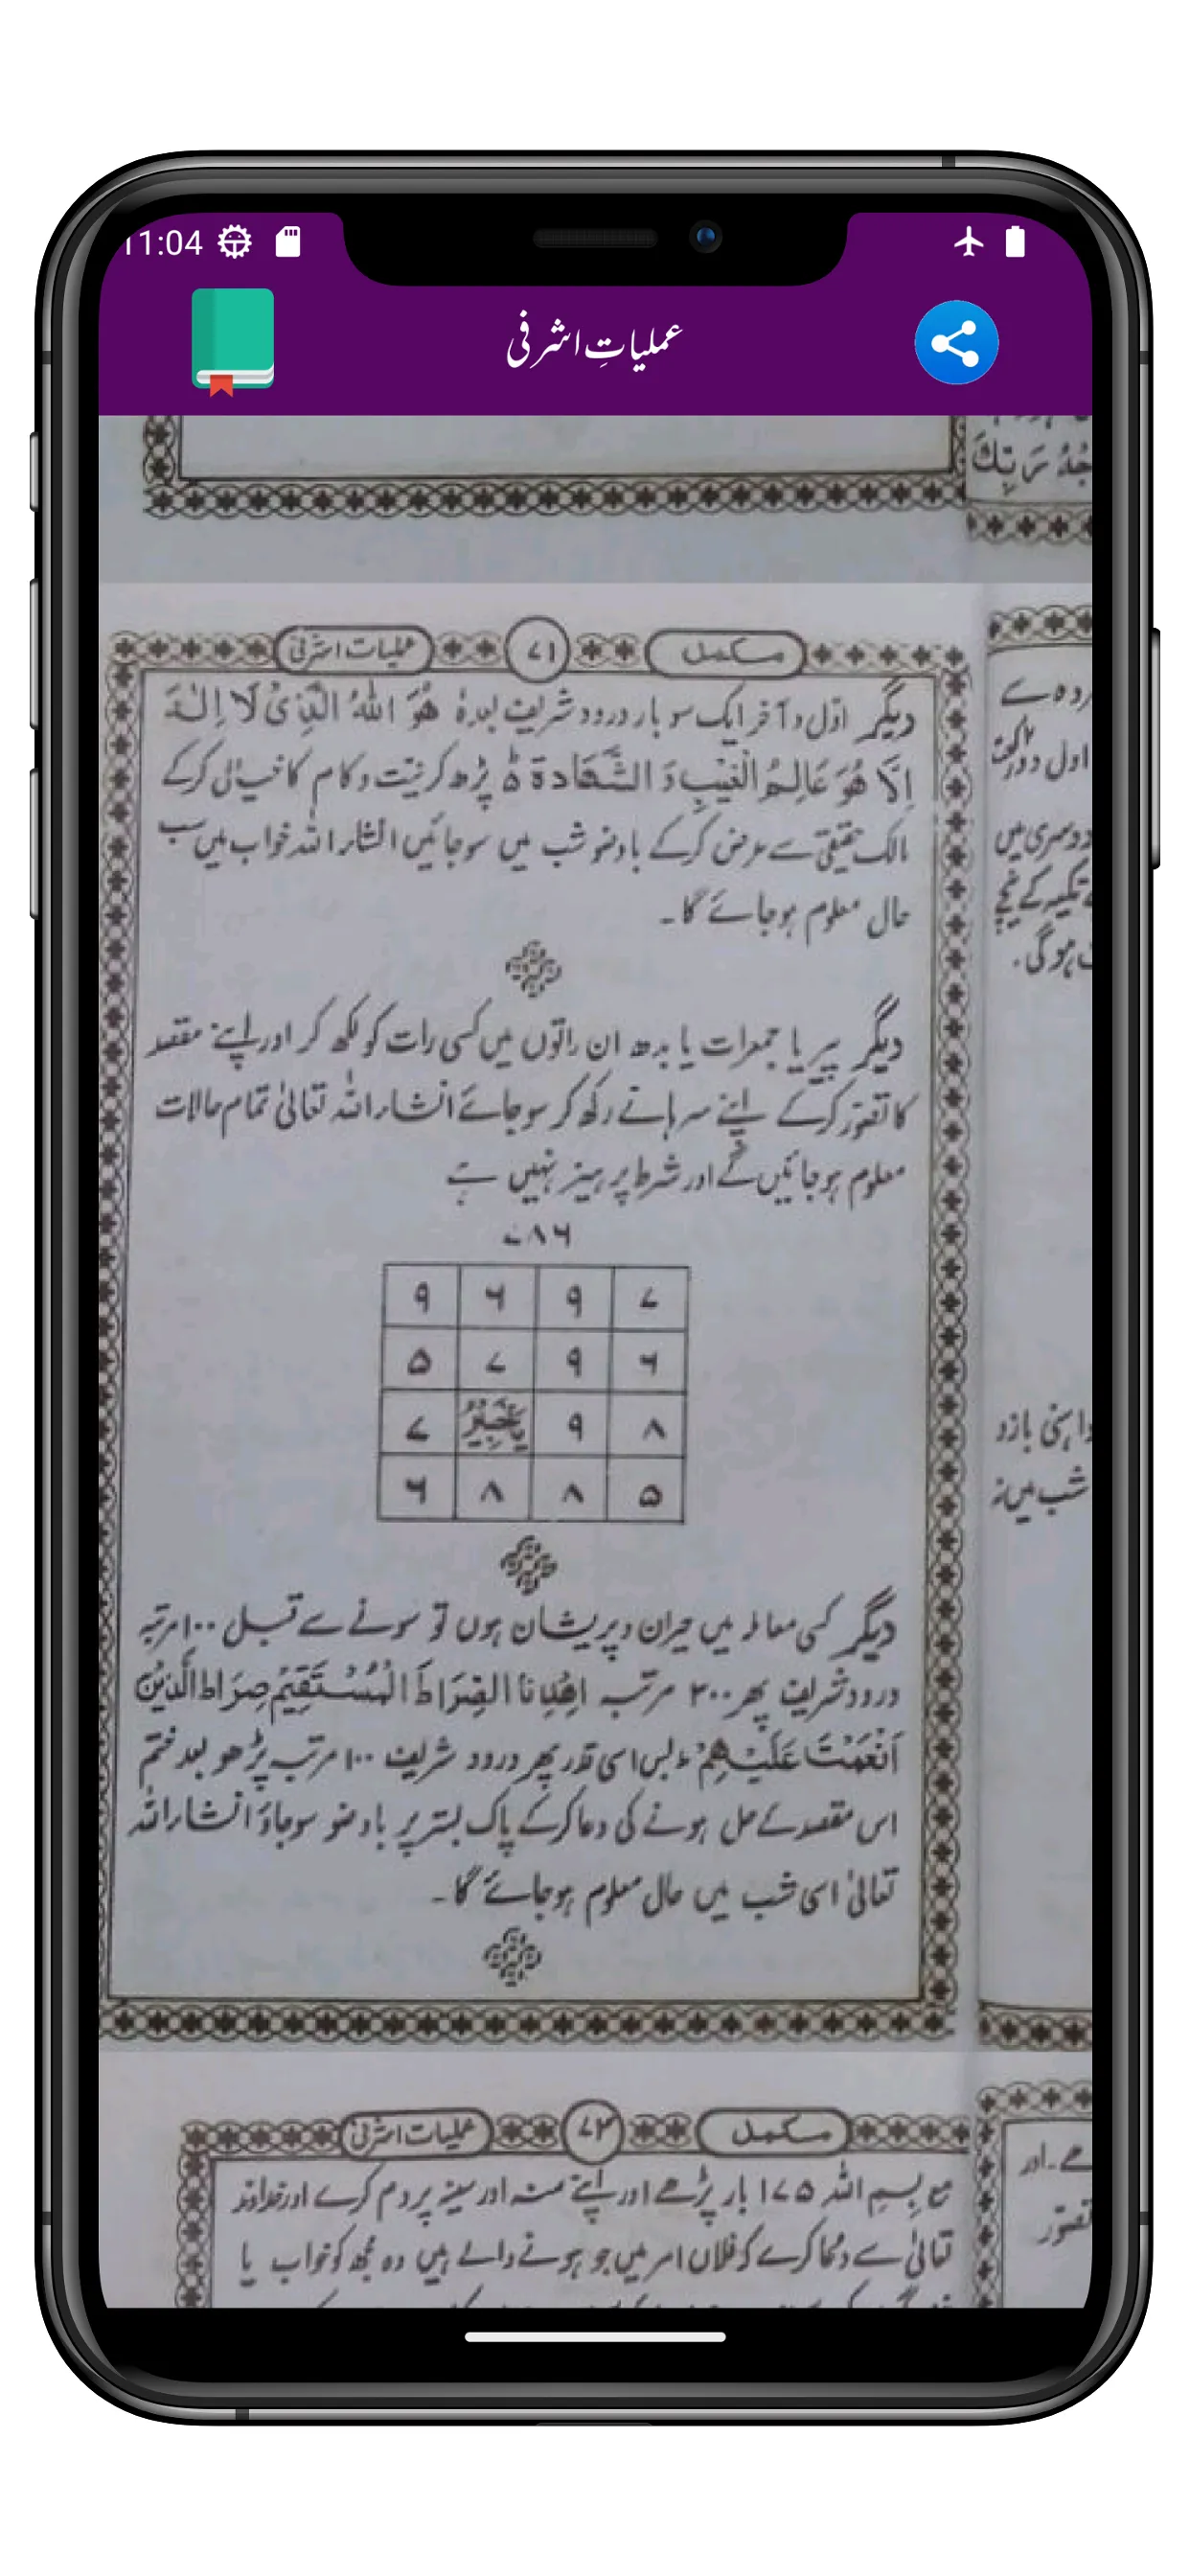 11:04
عملیاتِ اشرفی
جْهُ رَبِّكَ
مکمل ۷۱ عملیات اشرفی
دیگر اوّل و آخر ایک سو بار درود شریف بعدہٗ هُوَ اللهُ الَّذِیْ لَا اِلٰهَ
اِلَّا هُوَ عَالِمُ الْغَیْبِ وَ الشَّهَادَةِ ط پڑھ کر نیّت و کام کا خیال کرکے
مالک حقیقی سے عرض کرکے باوضو شب میں سوجائیں انشاء اللہ خواب میں سب
حال معلوم ہوجائے گا۔
دیگر پیر یا جمعرات یا بدھ ان راتوں میں کسی رات کو لکھ کر اور اپنے مقصد
کا تصوّر کرکے اپنے سرہانے رکھ کر سوجائے انشاء اللہ تعالیٰ تمام حالات
معلوم ہوجائیں گے اور شرط پرہیز نہیں ہے
۷۸۶
۹ ۶ ۹ ۷
۵ ۷ ۹ ۶
۷ یاخبیر ۹ ۸
۶ ۸ ۸ ۵
دیگر کسی معاملہ میں حیران و پریشان ہوں تو سونے سے قبل ۱۰۰ مرتبہ
درود شریف پھر ۳۰۰ مرتبہ اِهْدِنَا الصِّرَاطَ الْمُسْتَقِیْمَ صِرَاطَ الَّذِیْنَ
اَنْعَمْتَ عَلَیْهِمْ بس اسی قدر پھر درود شریف ۱۰۰ مرتبہ پڑھو بعد ختم
اس مقصد کے حل ہونے کی دعا کرکے پاک بستر پر باوضو سوجاؤ انشاء اللہ
تعالیٰ اسی شب میں حال معلوم ہوجائے گا۔
ردہ سے
اول دو
دوسری میں
تکیہ کے نیچے
ہوگی۔
داہنی بازو
شب میں
مکمل ۷۲ عملیات اشرفی
مع بسم اللہ ۱۷۵ بار پڑھے اور اپنے منہ اور سینہ پر دم کرے اور خداوند
تعالیٰ سے دعا کرے کہ فلاں امر میں جو ہونے والے ہیں وہ مجھ کو خواب یا
ے۔ اور
تصوّر